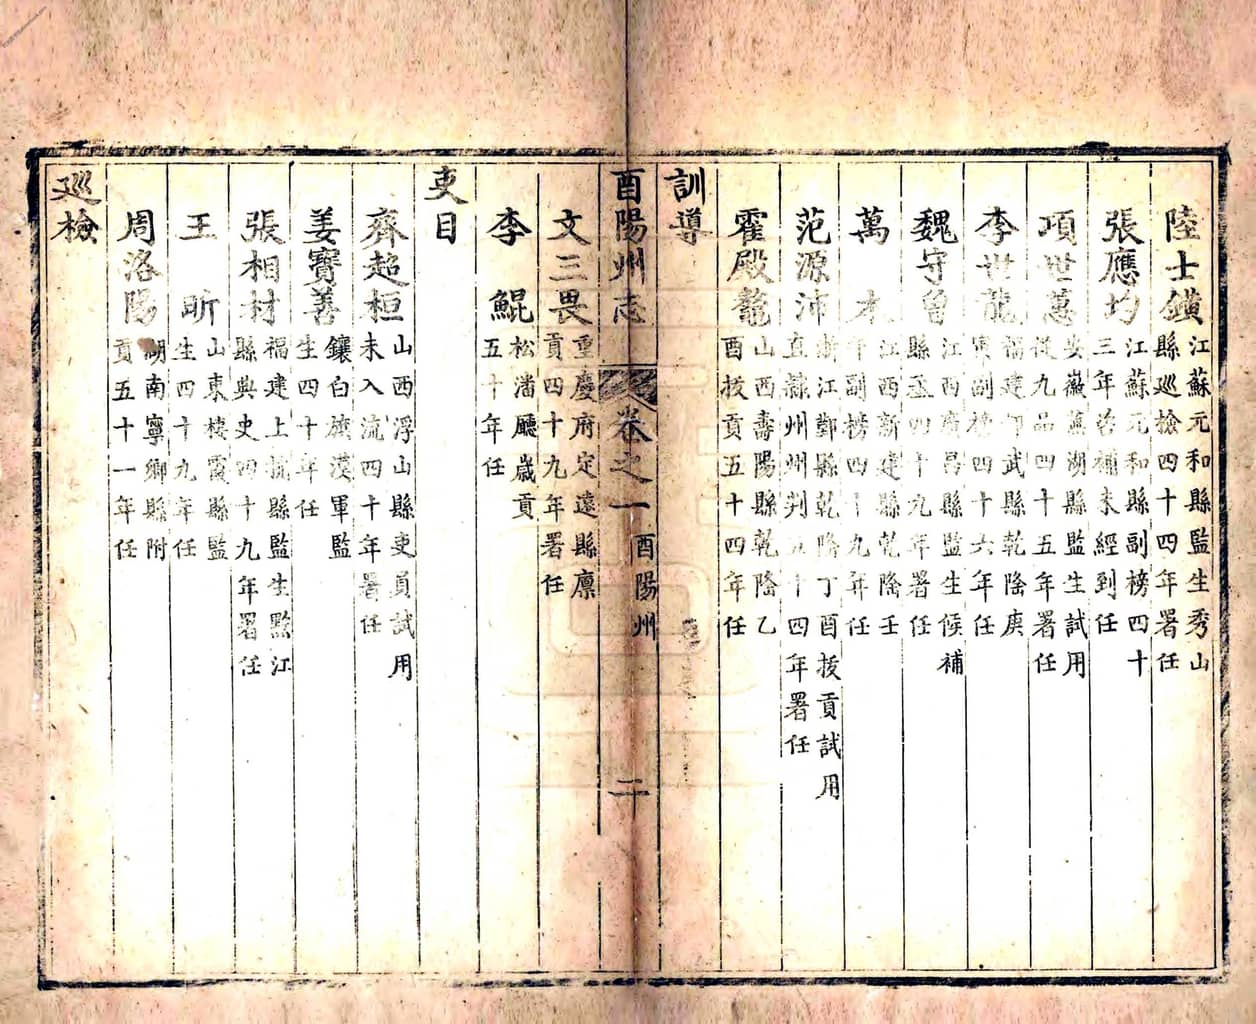 陸士鑛江蘇元和縣監生秀山縣巡檢四十四年署任
張應均江蘇元和縣副榜四十三年咨補未經到任
項世蕙安徽蕪湖縣監生試用從九品四十五年署任
李世龍福建邵武縣乾隆庚寅副榜四十六年任
魏守曾江西廣昌縣監生候補縣丞四十九年署任
萬 木江西新建縣乾隆壬午副榜四十九年任
范源沛浙江鄞縣乾隆丁酉拔貢試用直隸州州判五十四年署任
霍殿鼇山西壽陽縣乾隆乙酉拔貢五十四年任
訓導
酉陽州志 卷之一 酉陽州 二十
文三畏重慶府定遠縣廪貢四十九年署任
李 鯤松潘廳歲貢五十年任
吏目
齊超桓山西浮山縣吏員試用未入流四十年署任
姜寶善鑲白旗漢軍監生四十年任
張相材福建上杭縣監生黔江縣典史四十九年署任
王 昕山東棲霞縣監生四十九年任
周洛陽湖南寧鄉縣附貢五十一年任
巡檢